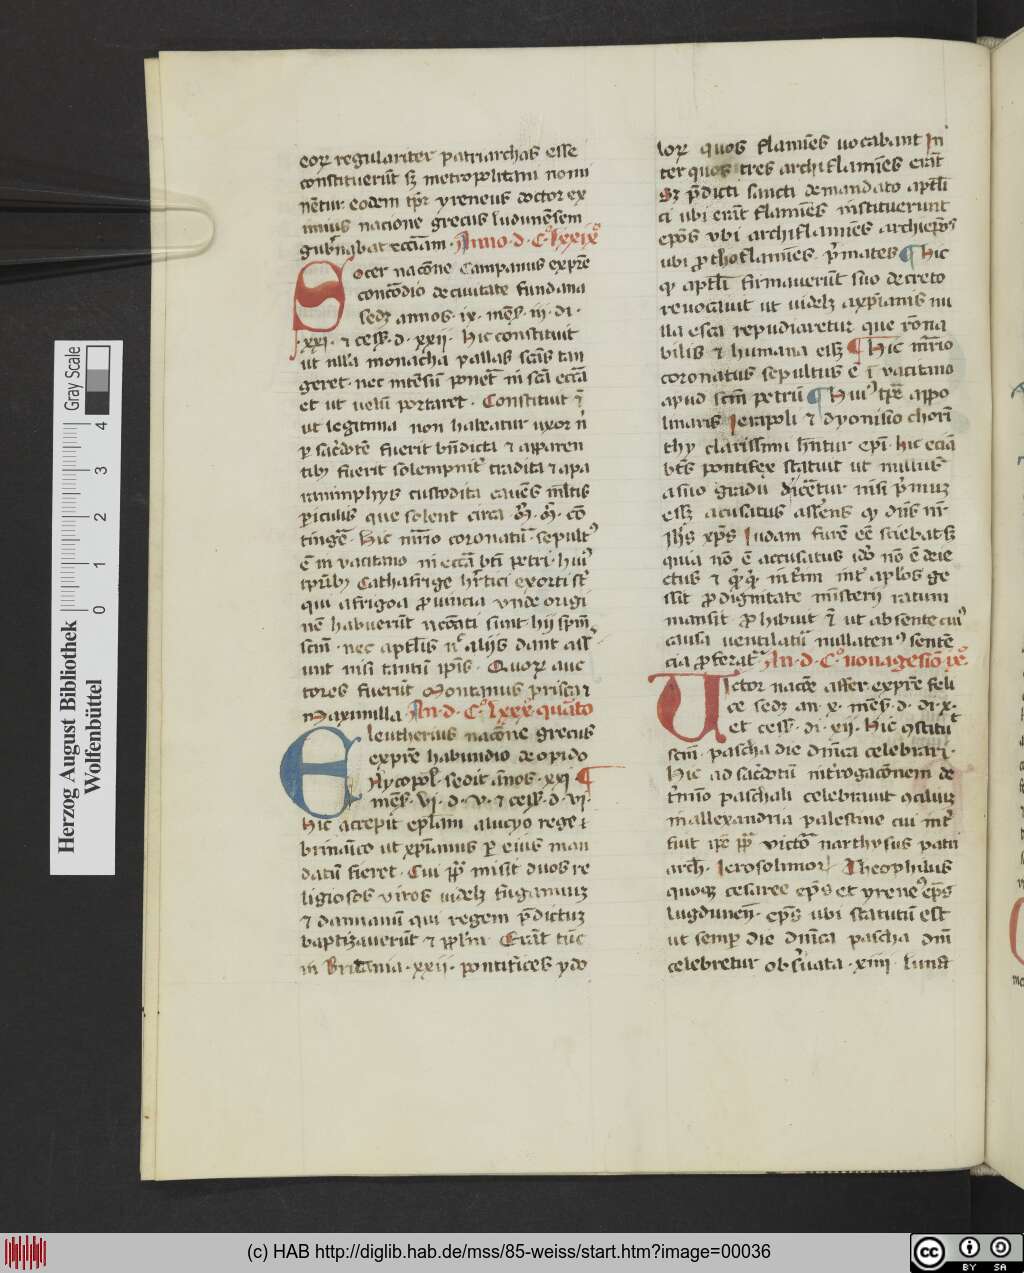 eoꝝ regulariter patriarchas esse
constituerūt sꝫ metropolitani nomi
nētur eodem tp̄r yreneus doctor ex
imius nacione grecus luduneṇ̄sem
gub̄nabat eccīam · Anno · d · C° lxxix°
Socer nacōne Campanus exp̄re
concōdio de ciuitate fundana
sedꝫ annos · ix · mēs̄ · iij · di ·
· xxi · ⁊ cess̄ · d · xxij · Hic constituit
ut nlla monacha pallas sc̄as tan
geret · nec incēsū poneret in sc̄a eccīa
et ut uelū portaret · Constituit ⁊
ut legitima non haberetur uxor n̄
ꝑ sac̄dotē fuerit bn̄dicta ⁊ a pparen
tibꝫ fuerit solempnit̄ tradita ⁊ a pa
raninphys custodita cauēs mltis
ꝑiculis que solent circa
tingē · Hic mr̄io coronatū · sepult⁹
ē in vaticano in eccīa bt̄i petri · hui⁹
Cathafrige hr̄tici exorti st̄
qui a frigoa ꝓuincia vnde origi
nē habuerūt ncōati sunt hij spm̄
scm̄ · nec aptl̄is nec alijs dant ass̄
unt nisi tantū ip̄is · Quoꝝ auc
tores fuerūt Montanus prisca ⁊
Maximilla An · d · C° lxxx° quarto
Eleutherius nacōne grecus
exp̄re habundio de opido
Nycopol̄ · sedit ānos · xxj · ¶
mēs̄ · vj · d · v · ⁊ cess̄ · d · vj ·
Hic accepit ep̄lam a lucyo rege
britanico ut xp̄ianus ꝑ eius man
datū fieret · Cui pp̄ misit duos re
ligiosos viros uidelꝫ fuganuꝫ
⁊ damianū qui regem p̄dictuꝫ
baptizauerūt ⁊ ppl̄m · Erāt tūc
in Britānia · xxij · pontifices ydo
loꝝ quos flamīes uocabant In
ter quos tres archiflamīes erāt
Sꝫ p̄dicti sancti de mandato aptl̄i
ci ubi erāt flamīes instituerunt
ep̄os vbi archiflamīes archiep̄os
ubi ꝓthoflamīes · p̄mates ¶ Hic
aptl̄i firmauerūt suo decreto
reuocauit ut uidelꝫ a xp̄ianis nu
lla esca repudiaretur que rōna
bilis ⁊ humana essꝫ ¶ Hic mr̄io
coronatus sepultus ē ī vaticano
apud scm̄ petrū ¶ Hui⁹ tp̄re appo
linaris Ierapoli ⁊ dyonisio chorī
thy clarissimi hn̄tur ep̄i · hic eciā
bt̄s pontifex statuit ut nullus
a suo gradu dicētur nisi p̄muꝫ
essꝫ accusatus ass̄ens dn̄s nr̄
Ih̄s xp̄s Iudam furē eē sciebat sꝫ
quia nō ē accusatus idō nō ē deie
ctus ⁊ int̄ ap̄los ge
ssit ꝓ dignitate misterij ratum
mansit ꝓhibuit ⁊ ut absente cui⁹
causa uentilatur nullaten⁹ sentē
cia ꝓferat̄ An · d · C° nonagesīo ix°
Uictor nacōe affer exp̄re feli
ce sedꝫ an · x · mēs̄ · d · di · x ·
et cess̄ · di · xij · Hic ꝯstituit
scm̄ · pascha die dn̄ica celebrari ·
Hic ad sac̄dotū int̄rogacōnem de
t̄mīo paschali celebrauit ꝯciliuꝫ
in allexandria palestine cui int̄
fuit ip̄e pp̄ victor̄ narthysus patri
arch̄ · Ierosolimoꝝ Theophilus
quoqꝫ cesaree ep̄s et yrene⁹ ep̄s
lugdunen̄ · ep̄s ubi statutū est
ut semꝑ die dn̄ica pascha dn̄i
celebretur obs̄uata · xiiij · luna
Herzog August Bibliothek
Wolfenbüttel
Gray Scale
0 1 2 3 4
(c) HAB http://diglib.hab.de/mss/85-weiss/start.htm?image=00036
cc BY SA